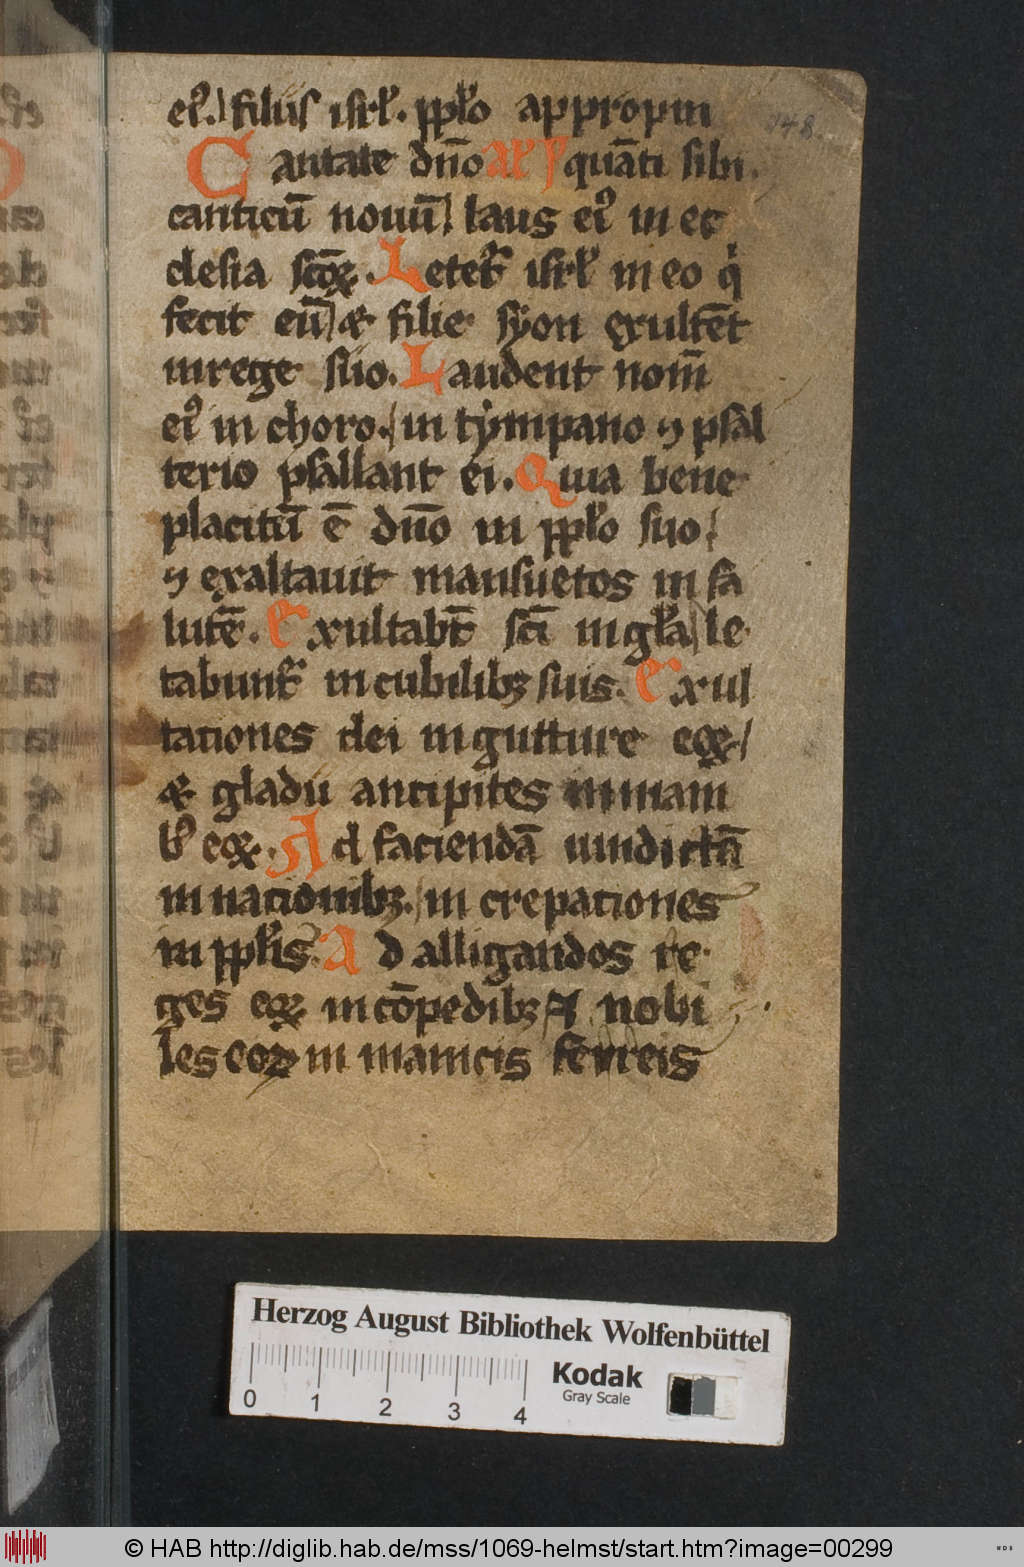 eiꝰ./ filiis isrł. ppło appropin
Cantate dn̄o Ał's quāti sibi.
canticū nouū/ laus eiꝰ in ec
clesia sc̄oꝝ. Letet᷑ isrł in eo qͥ
fecit eū/ ⁊ filie syon exultēt
in rege suo. Laudent nom̄
eiꝰ in choro./ in tympano ⁊ psal
terio psallant ei. Quia bene
placitū ē dn̄o in ppło suo/
⁊ exaltauit mansuetos in sa
lutē. Exultabt̄ sc̄i in gła/ le
tabunt᷑ in cubilibꝫ suis. Exul
tationes dei in gutture eoꝝ/
⁊ gladii ancipites in mani
bꝰ eoꝝ. Ad faciendā uindictā
in nationibꝫ./ in crepationes
in ppłis. Ad alligandos re
ges eoꝝ in cōpedibꝫ ⁊ nobi
les eoꝝ in manicis ferreis
Herzog August Bibliothek Wolfenbüttel
Kodak
Gray Scale
0 1 2 3 4
© HAB http://diglib.hab.de/mss/1069-helmst/start.htm?image=00299